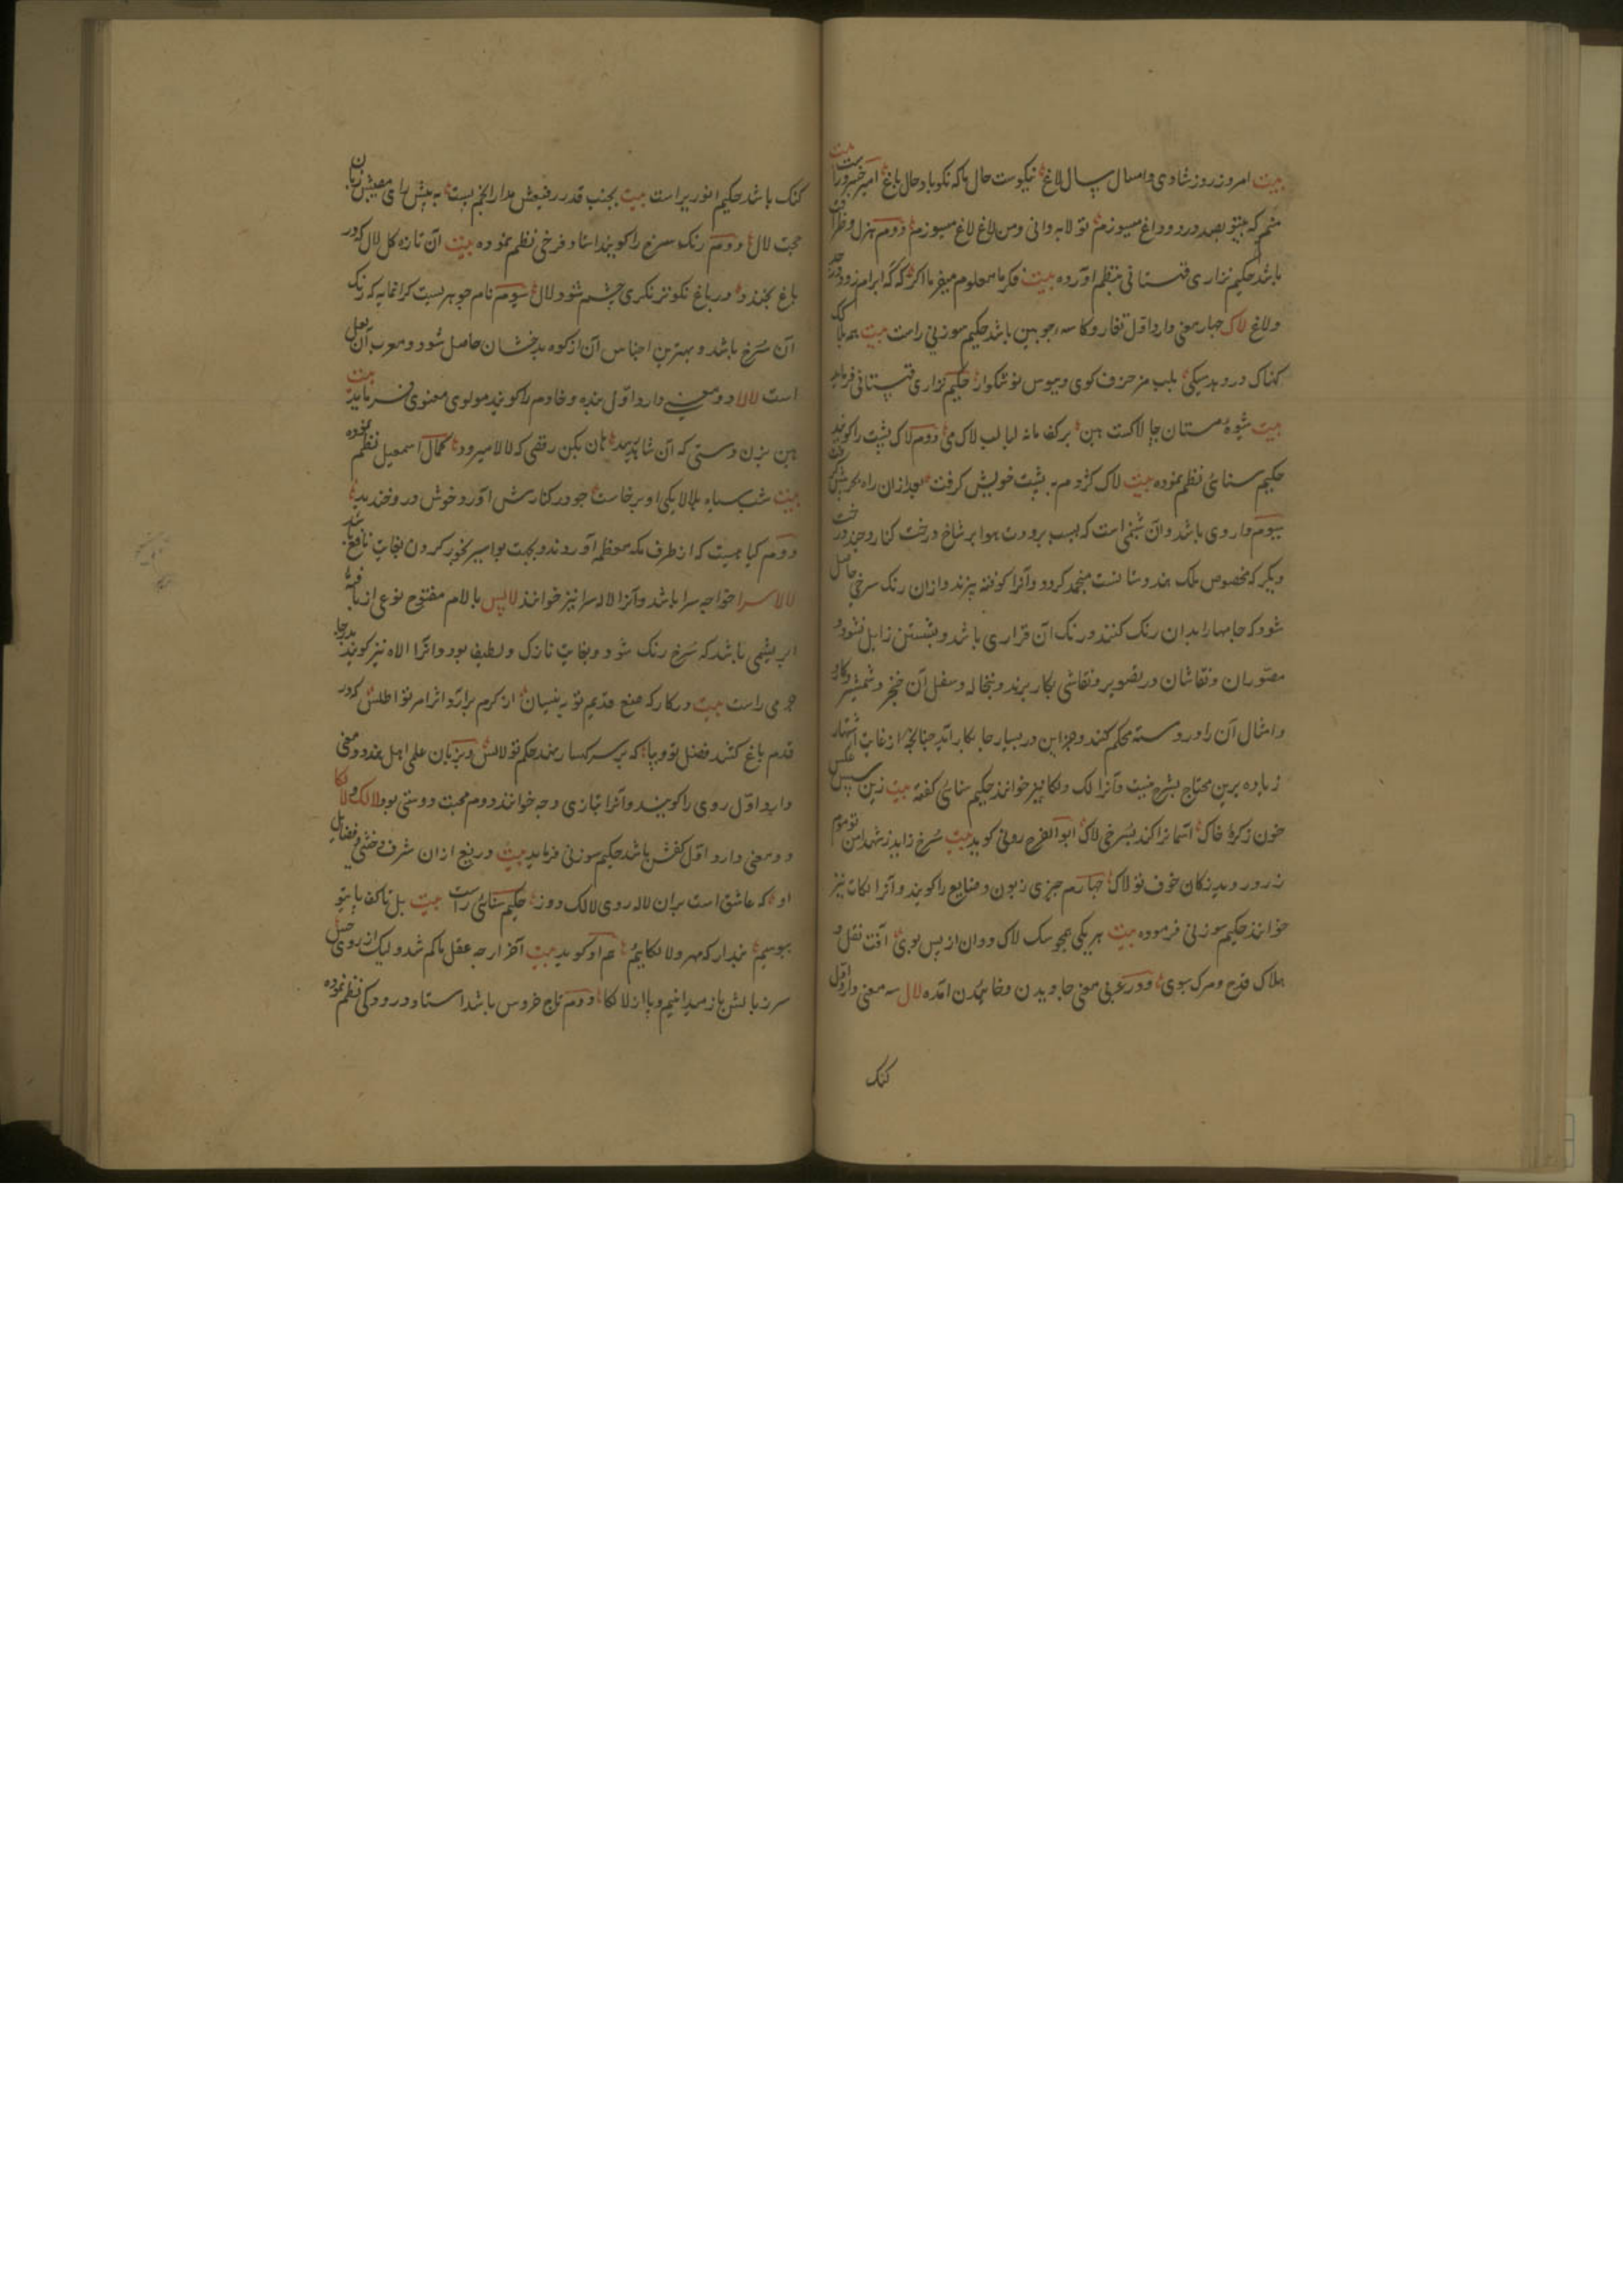 بیت امروز روز شادی و امسال سال لاغ نیکوست حال ما که نکو باد حال باغ امیر خسرو راست بیت
منم که بیتو بصد درد و داغ میسوزم تو لابه دانی و من لاغ لاغ میسوزم دوم هزل و ظرافت
باشد حکیم نزاری قهستانی بنظم آورده بیت فکر ما معلوم میفرما اکر که که ابرام رود در
ولاغ لاک چهار معنی دارد اول تغار و کاسه چوبین باشد حکیم سوزنی راست بیت
حکیم نزاری قهستانی فرماید
بیت شیوهٔ مستان چالاکست هین برکف مانه لبالب لاک می دوم لاک پشت را کویند
حکیم سنائی نظم نموده بیت لاک کژدم به پشت خویش کرفت بعد ازان راه بحر پیش کرفت
سیوم داروی باشد و آن شبنمی است که بسبب برودت هوا بر شاخ درخت کنار و چند درخت
دیگر که مخصوص ملک هندوستانست منجمد کردد و آنرا کوفته بپزند و ازان رنک سرخی حاصل
شود که جامها را بدان رنک کنند و رنک آن قراری باشد و بشستن زایل نشود و
مصوران و نقاشان در تصویر و نقاشی بکار برند و بنخاله و سفل آن خنجر و شمشیر و کارد
و امثال آن را در دسته محکم کنند و جز این در بسیار جا بکار آید چنانچه از غایت اشتهار
زیاده برین محتاج بشرح نیست و آنرا لک و لکا نیز خوانند حکیم سنائی کفته بیت زین سپس عکس
خون ز کرهٔ خاک آسمانرا کند بسرخی لاک ابو الفرج رونی کوید بیت سرخ زاید ز شهد امن تو موم
زرد روید ز کان خوف تو لاک چهارم چیزی زبون و ضایع را کویند و آنرا لکات نیز
خوانند حکیم سوزنی فرموده بیت هر یکی همچو سک لاک دوان از پس بوی آفت نقل و
هلاک قدح و مرک سبوی و در عربی معنی جاویدن و خائیدن آمده لال سه معنی دارد اول
کنک
کنک باشد حکیم انوری راست بیت بجنب قدر رفیعش مدار انجم پست به پیش رای مصیبش زبان
حجت لال دوم رنک سرخ را کویند استاد فرخی نظم نموده بیت آن تازه کل لال که در
باغ بخندد در باغ نکوتر نکری چشم شود لال سوم نام جوهریست کرانمایه که رنک
آن سرخ باشد و بهترین اجناس آن از کوه بدخشان حاصل شود و معرب آن لعل
است لالا دو معنی دارد اول بنده و خادم را کویند مولوی معنوی فرماید بیت
هین بزن دستی که آن شاهد رسید هان بکن رقصی که لالا میرود کمال اسمعیل نظم نموده
بیت شب سیاه بلالایکی او برخاست چو در کنارش آورد خوش درو خندید
دوم کیاهیست که از طرف مکه معظمه آورند و بجهت بواسیر بخور کردن بغایت نافع باشد
لالا سرا خواجه سرا باشد و آنرا لاله سرا نیز خوانند لالس با لام مفتوح نوعی از بافتهٔ
ابریشمی باشد که سرخ رنک شود و بغایت نازک و لطیف بود و آنرا الاه نیز کویند بدر جا
جرمی راست بیت در کارکه صنع قدیم تو به نیسان از کرم برآرد اثر امر تو اطلس که در
قدم باغ کشد فضل تو دیبا که بر سر کهسار نهد حکم تو لالس و بزبان علمی اهل هند دو معنی
دارد اول روی را کویند و آنرا بتازی وجه خوانند دوم محبت و دوستی بود لالک و لالکا
دو معنی دارد اول کفش باشد حکیم سوزنی فرماید بیت دریغ ازان شرف و خشتی و فضایل
او که عاشق است بران لاله روی لالک دوز حکیم سنائی راست بیت بل تا کف پای تو
ببوسیم پندار که مهر و لالکاییم هم او کوید بیت آخر ارچه عقل ما کم شد ولیک از روی حیل
سر ز بالش باز میدانیم و پا از لالکا دوم تاج خروس باشد استاد رودکی نظم نموده